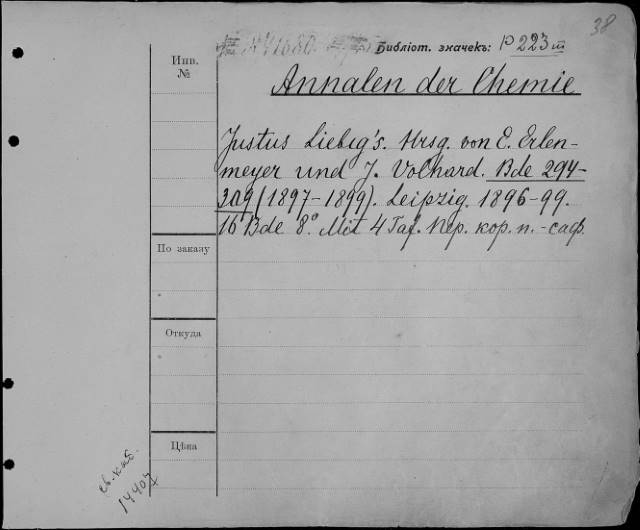 38
Библіот. значекъ: P 223 m
Инв.
№
Annalen der Chemie
Justus Liebig's. Hrsg. von E. Erlen-
meyer und J. Volhard. Bde 294-
309 (1897-1899). Leipzig. 1896-99.
16 Bde 8º. Mit 4 Taf. Пер. кор. п.-саф.
По заказу
Откуда
Цѣна
св. каб.
14407